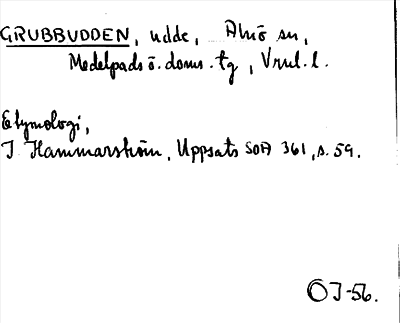 GRUBBUDDEN, udde, Alnö sn,
Medelpads ö. doms. tg, Vnrl. l.
Etymologi,
I. Hammarström, Uppsats SOA 361, s. 59.
OJ-56.